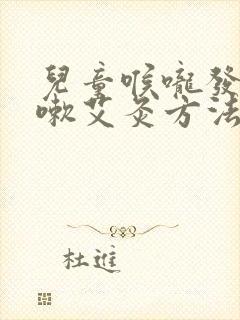 兒童喉嚨發
嗽艾灸方法
杜進